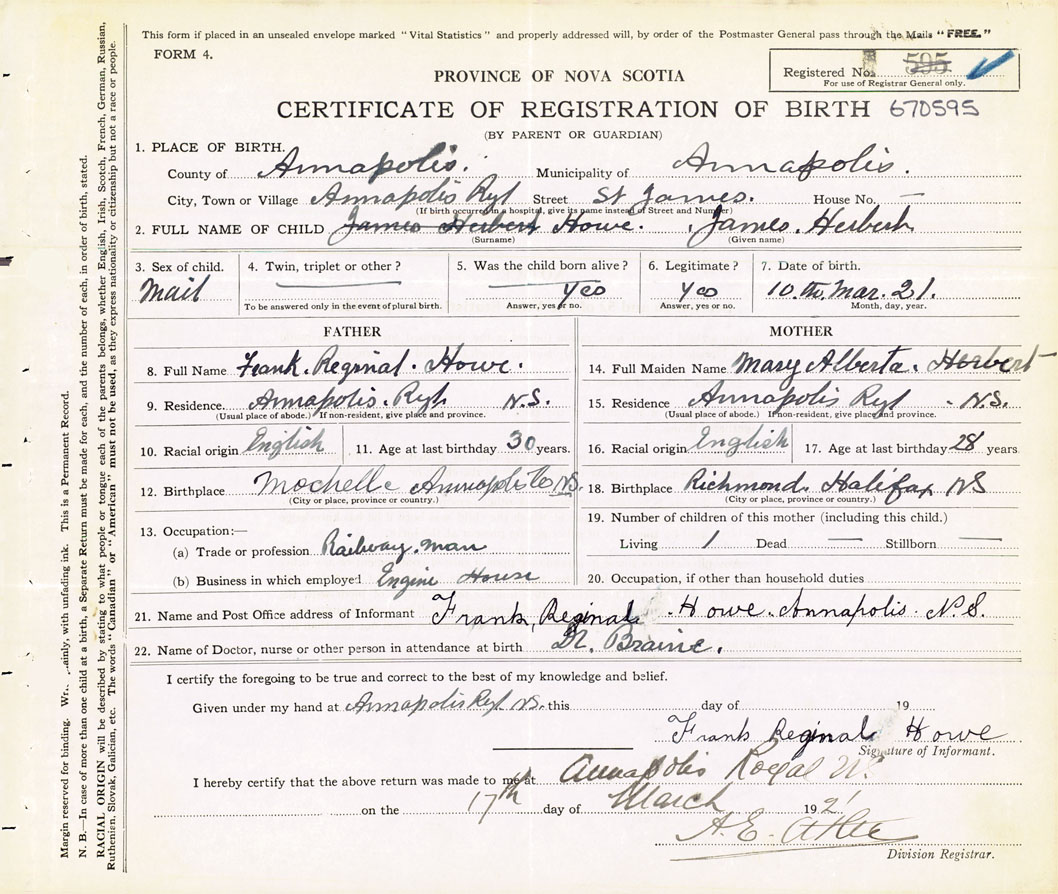 This form if placed in an unsealed envelope marked "Vital Statistics" and properly addressed will, by order of the Postmaster General pass through the Mails "FREE."
FORM 4.
Registered No. 595
For use of Registrar General only.
PROVINCE OF NOVA SCOTIA
CERTIFICATE OF REGISTRATION OF BIRTH 670595
(BY PARENT OR GUARDIAN)
1. PLACE OF BIRTH.
County of Annapolis. Municipality of Annapolis.
City, Town or Village Annapolis Ryl Street St James. House No. —
(If birth occurred in a hospital, give its name instead of Street and Number)
2. FULL NAME OF CHILD James Herbert Howe. James. Herbert
(Surname) (Given name)
3. Sex of child. 4. Twin, triplet or other? 5. Was the child born alive? 6. Legitimate? 7. Date of birth.
Mail yes yes 10.th. Mar. 21.
To be answered only in the event of plural birth. Answer, yes or no. Answer, yes or no. Month, day, year.
FATHER
8. Full Name Frank. Reginal. Howe.
9. Residence. Annapolis. Ryl. N.S.
(Usual place of abode.) If non-resident, give place and province.
10. Racial origin English 11. Age at last birthday 30 years.
12. Birthplace Mochelle Annapolis Co N.S.
(City or place, province or country.)
13. Occupation:—
(a) Trade or profession Railway. man
(b) Business in which employed Engine House
MOTHER
14. Full Maiden Name Mary Alberta. Herbert
15. Residence Annapolis Ryl - N.S.
(Usual place of abode.) If non-resident, give place and province.
16. Racial origin English 17. Age at last birthday 28 years
18. Birthplace Richmond. Halifax NS
(City or place, province or country.)
19. Number of children of this mother (including this child.)
Living 1 Dead — Stillborn —
20. Occupation, if other than household duties
21. Name and Post Office address of Informant Frank, Reginal. Howe. Annapolis. N.S.
22. Name of Doctor, nurse or other person in attendance at birth Dr. Braine.
I certify the foregoing to be true and correct to the best of my knowledge and belief.
Given under my hand at Annapolis Ryl. NS. this day of 19
Frank Reginal Howe
Signature of Informant.
I hereby certify that the above return was made to me at Annapolis Royal N.S.
on the 17th day of March 1921
A.E. Atlee
Division Registrar.
Margin reserved for binding. Wr.. ..ainly, with unfading ink. This is a Permanent Record.
N. B.—In case of more than one child at a birth, a Separate Return must be made for each, and the number of each, in order of birth, stated.
RACIAL ORIGIN will be described by stating to what people or tongue each of the parents belongs, whether English, Irish, Scotch, French, German, Russian,
Ruthenian, Slovak, Galician, etc. The words "Canadian" or "American" must not be used, as they express nationality or citizenship but not a race or people.